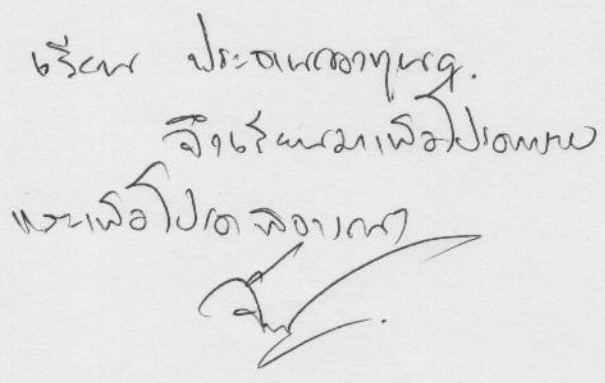 เรียน ประธาน
จึงเรียนมาเพื่อโปรดทราบ
และเพื่อโปรดพิจารณา